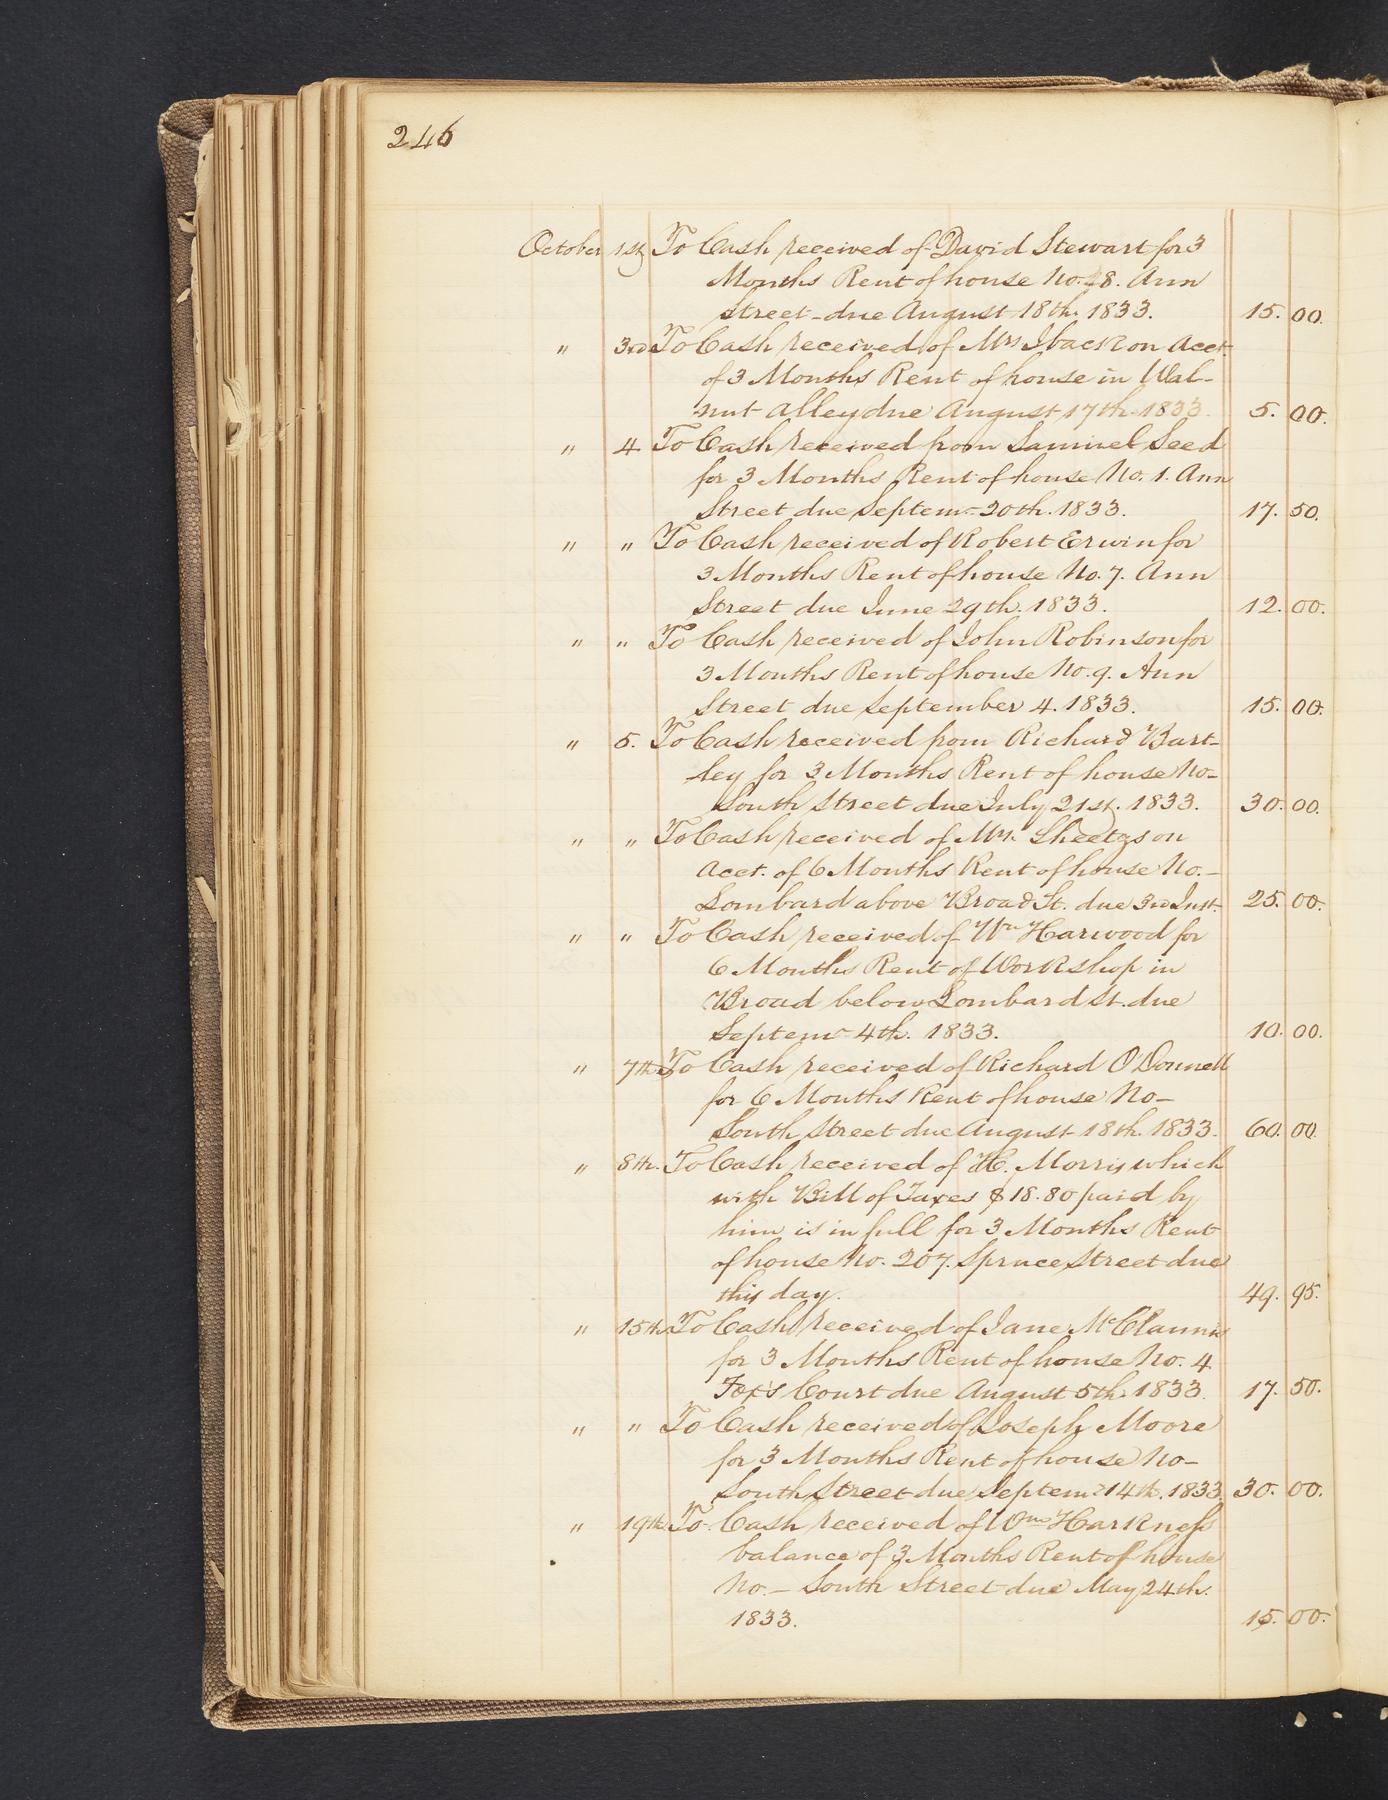 246
October 1st To Cash received of David Stewart for 3
Months Rent of house No. 28. Ann
Street due August 18th. 1833. 15. 00.
" 3rd To Cash received of Mrs Iback on Acct.
of 3 Months Rent of house in Wal-
nut Alley due August 17th. 1833. 5. 00.
" 4. To Cash received from Samuel Seed
for 3 Months Rent of house No. 1. Ann
Street due Septemr 20th. 1833. 17. 50.
" " To Cash received of Robert Erwin for
3 Months Rent of house No. 7. Ann
Street due June 29th. 1833. 12. 00.
" " To Cash received of John Robinson for
3 Months Rent of house No. 9. Ann
Street due September 4. 1833. 15. 00.
" 5. To Cash received from Richard Bart-
ley for 3 Months Rent of house No-
South Street due July 21st. 1833. 30. 00.
" " To Cash received of Mrs. Sheetgs on
Acct. of 6 Months Rent of house No. -
Lombard above Broad St. due 3rd Inst. 25. 00.
" " To Cash received of Wm Harwood for
6 Months Rent of Workshop in
Broad below Lombard St. due
Septemr 4th. 1833. 10. 00.
" 7th. To Cash received of Richard O'Donnell
for 6 Months Rent of house No-
South Street due August 18th. 1833. 60. 00.
" 8th. To Cash received of H. Morris which
with Bill of Taxes $18.80 paid by
him is in full for 3 Months Rent
of house No. 207. Spruce Street due
this day. 49. 95.
" 15th To Cash received of Jane McClannis
for 3 Months Rent of house No. 4
Fox's Court due August 5th. 1833. 17. 50.
" " To Cash received of Joseph Moore
for 3 Months Rent of house No-
South Street due Septemr 14th. 1833. 30. 00.
" 19th. To Cash received of Wm Harkness
balance of 3 Months Rent of house
No. - South Street due May 24th.
1833. 15. 00.